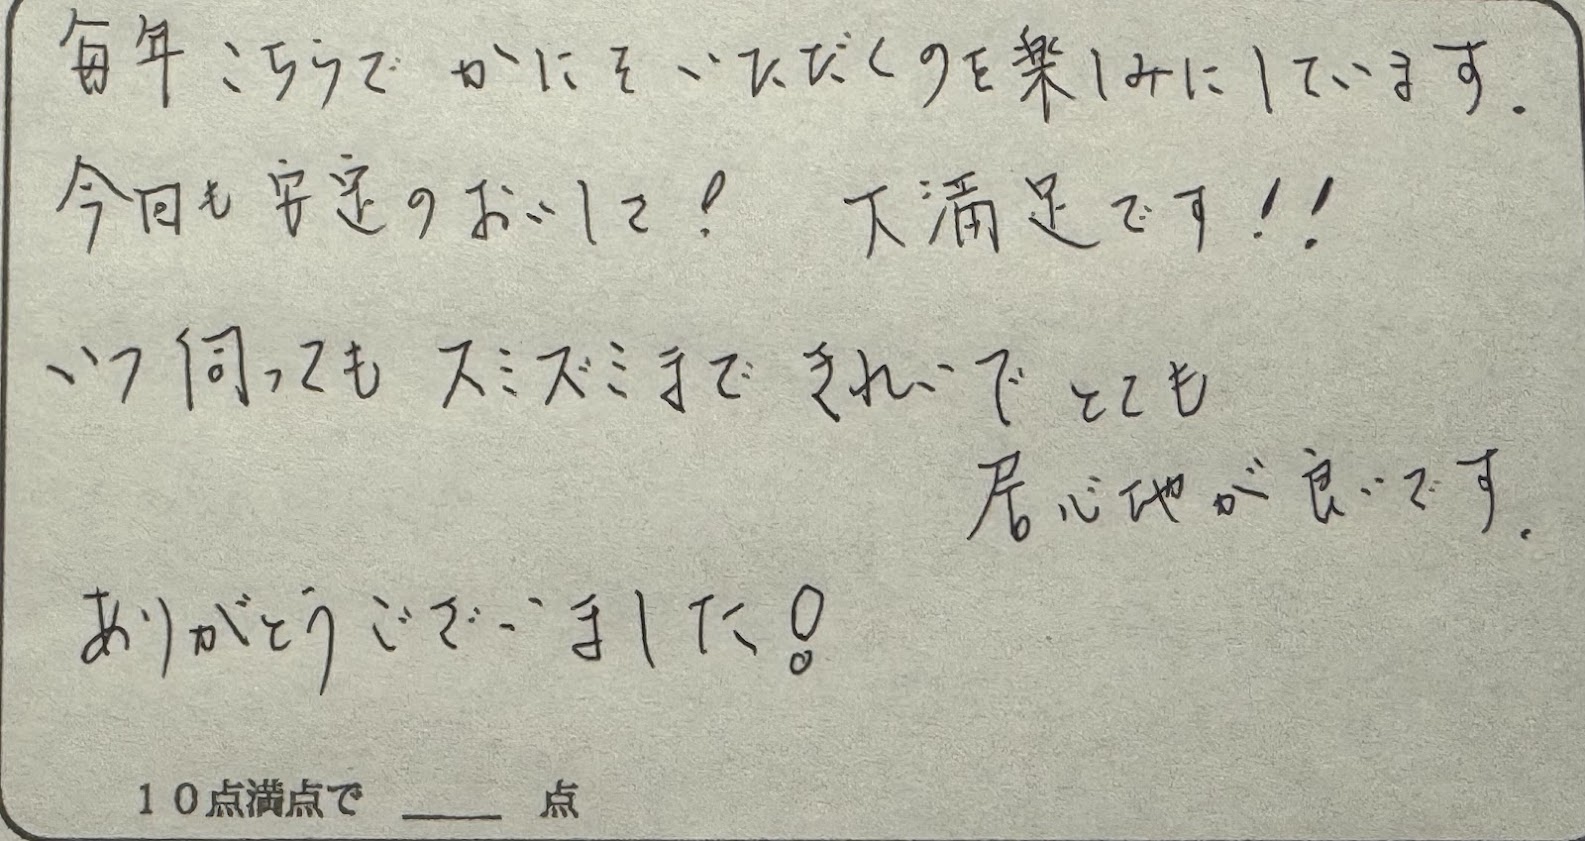 毎年こちらでかにをいただくのを楽しみにしています.
今回も安定のおいしさ! 大満足です!!
いつ伺ってもスミズミまできれいでとても
居心地が良いです.
ありがとうございました!
10点満点で ____ 点